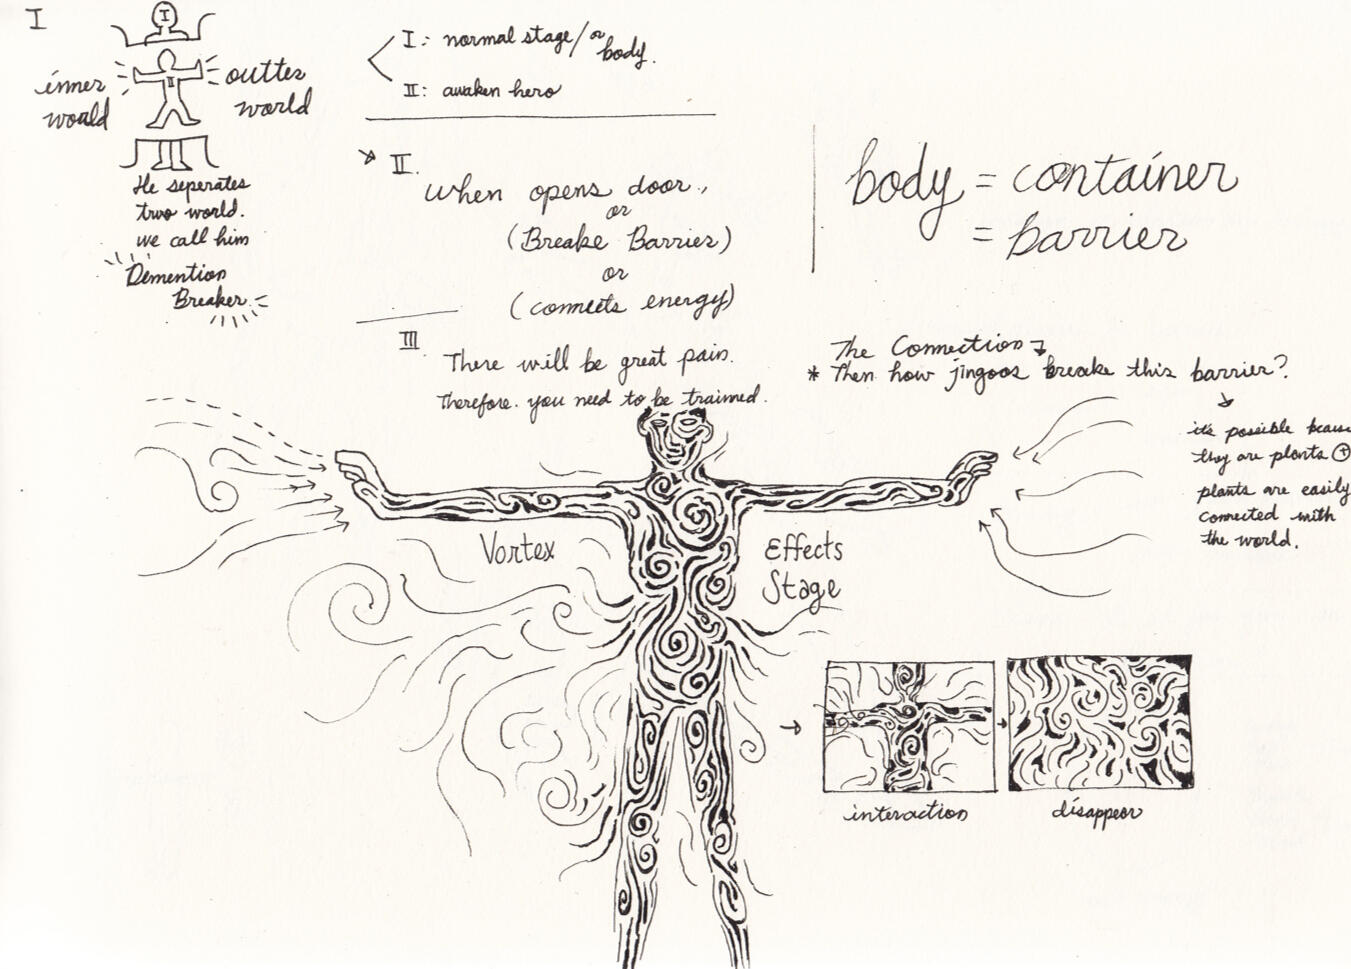 I
I
II
inner
world
outter
world
He seperates
two world.
we call him
Demention
Breaker
I: normal stage/or body.
II: awaken hero
II.
When opens door,
or
(Breake Barrier)
or
(connects energy)
III.
There will be great pain.
Therefore. you need to be trained.
body = container
= barrier
The Connection
* Then how jingoos breake this barrier?
it's possible becaus
they are plants +
plants are easily
connected with
the world.
Vortex
Effects
Stage
interaction
disappear